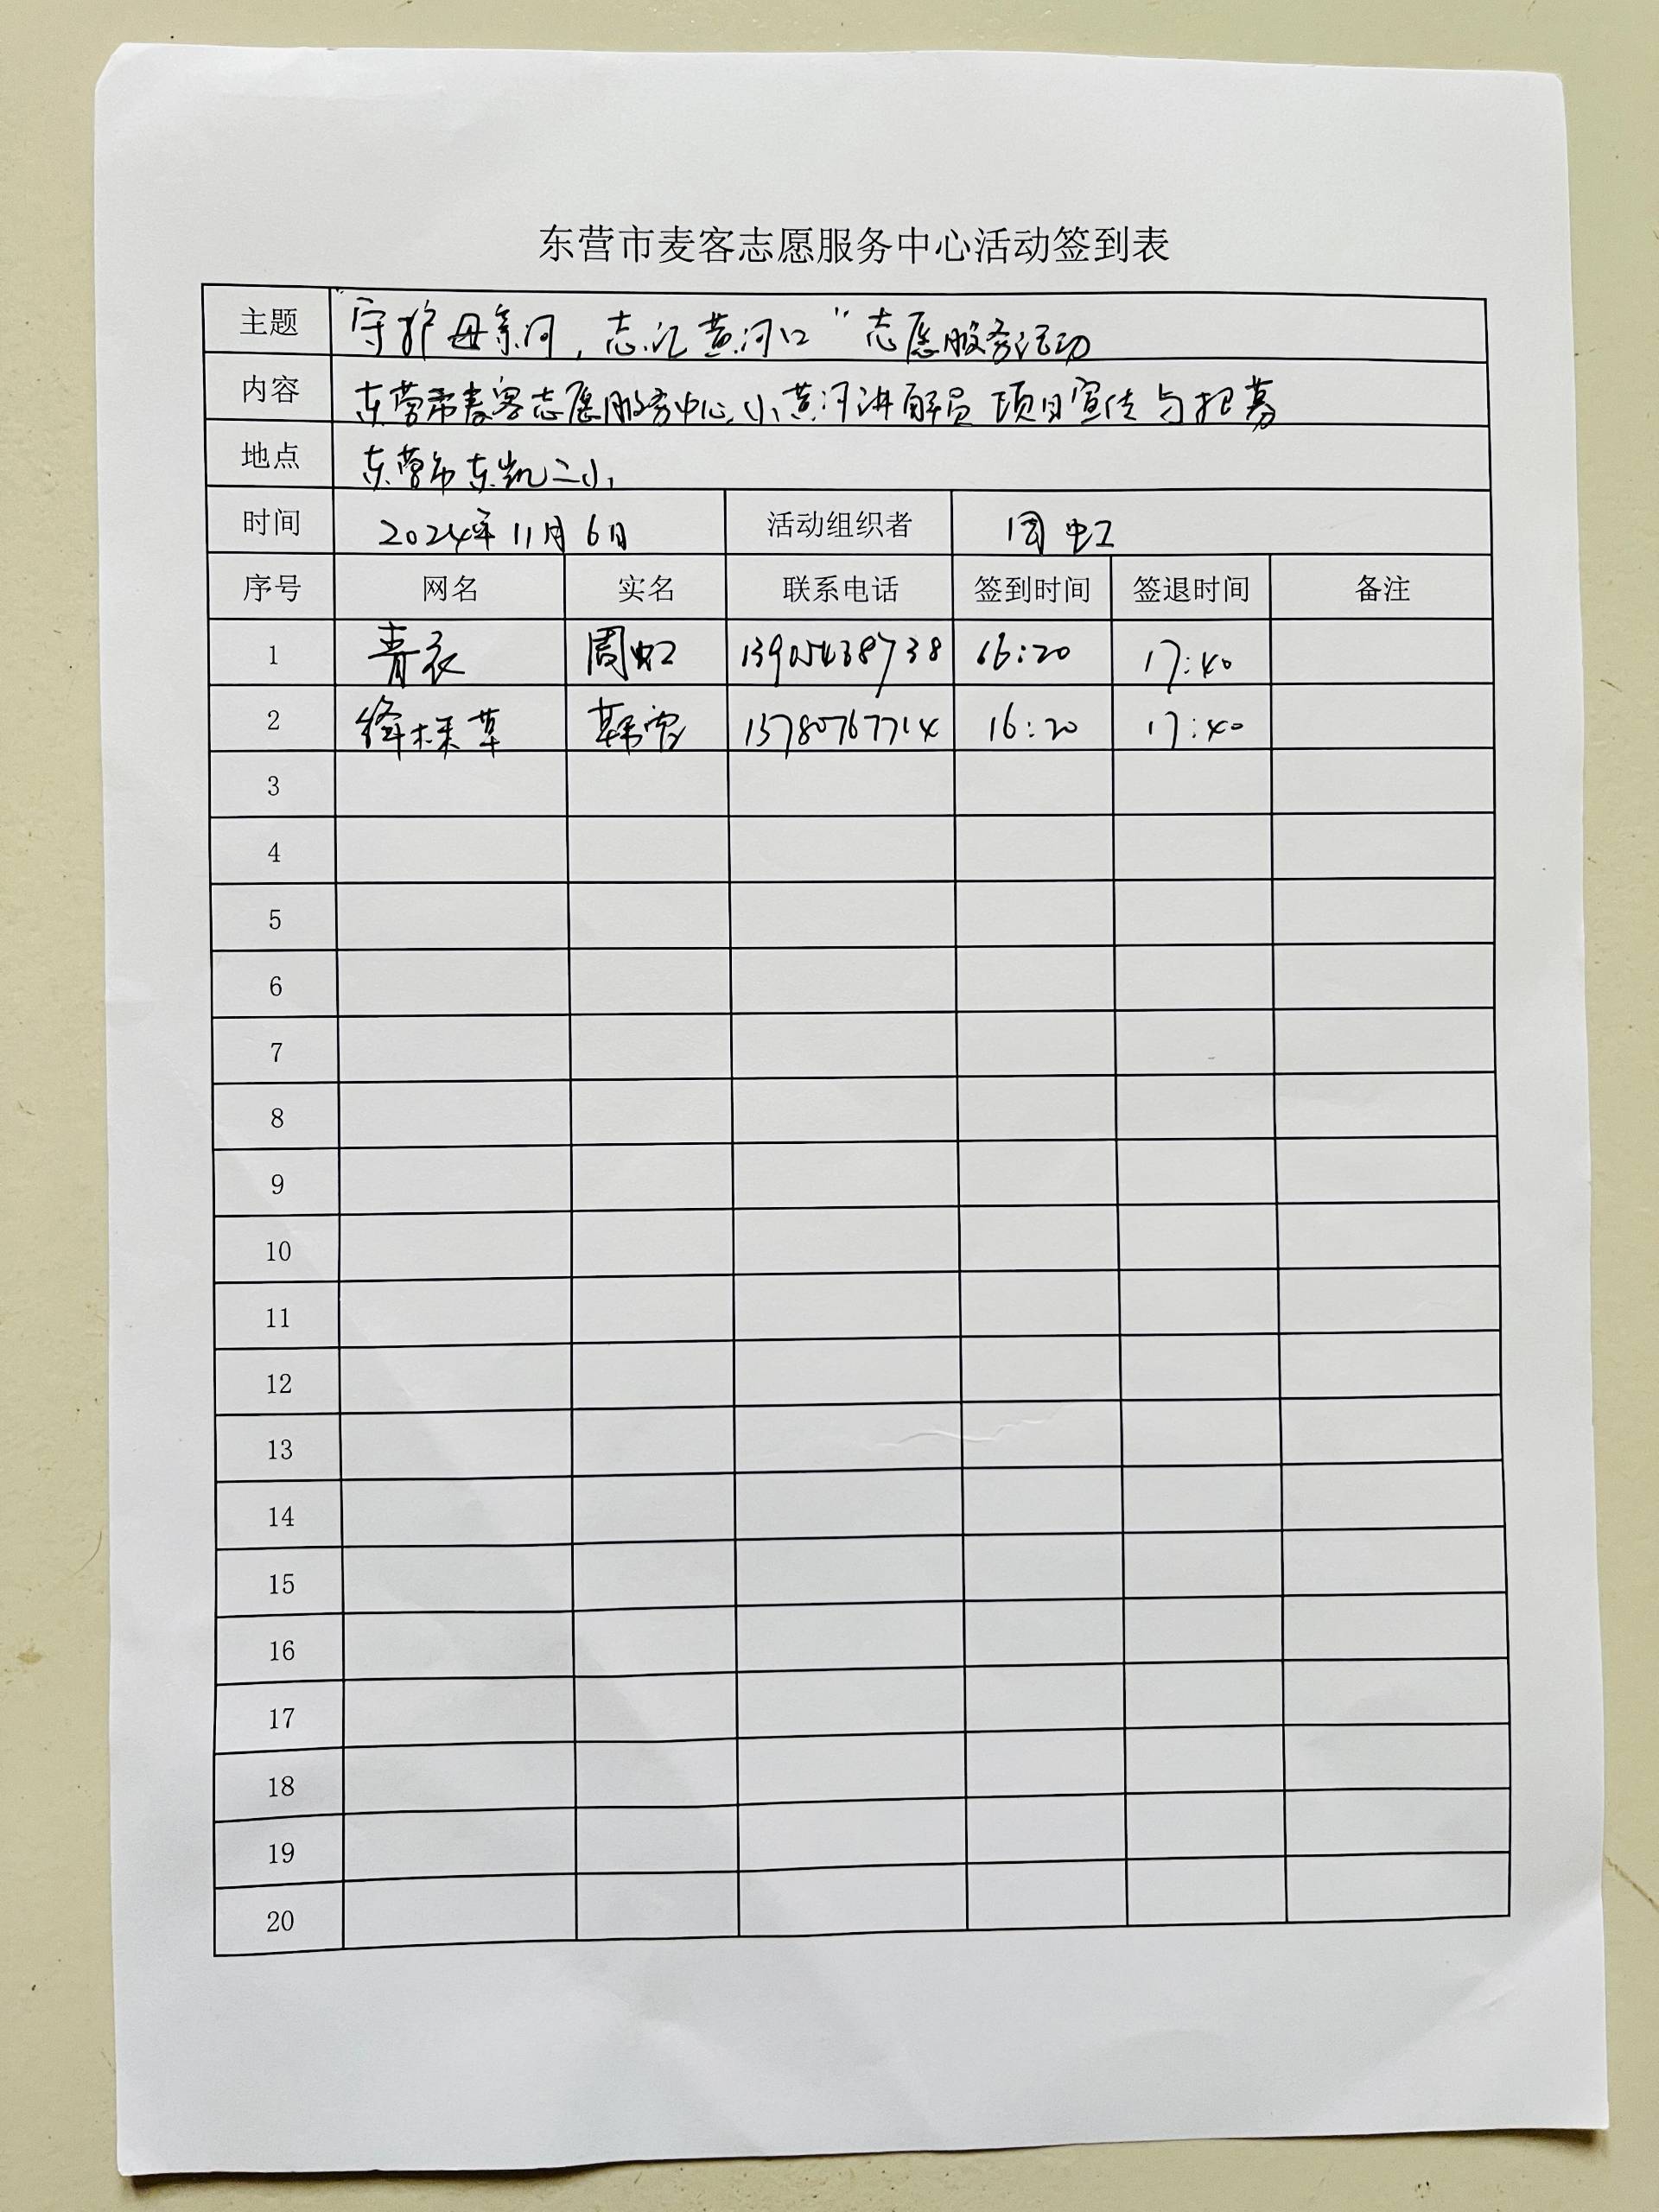 东营市麦客志愿服务中心活动签到表
主题 "守护母亲河，志汇黄河口"志愿服务活动
内容 东营市麦客志愿服务中心小黄河讲解员项目宣传与招募
地点 东营市东凯二小
时间 2024年11月6日 活动组织者 周虹
序号 网名 实名 联系电话 签到时间 签退时间 备注
1 青衣 周虹 16:20 17:40
2 草 韩雪 13780767714 16:20 17:40
3
4
5
6
7
8
9
10
11
12
13
14
15
16
17
18
19
20